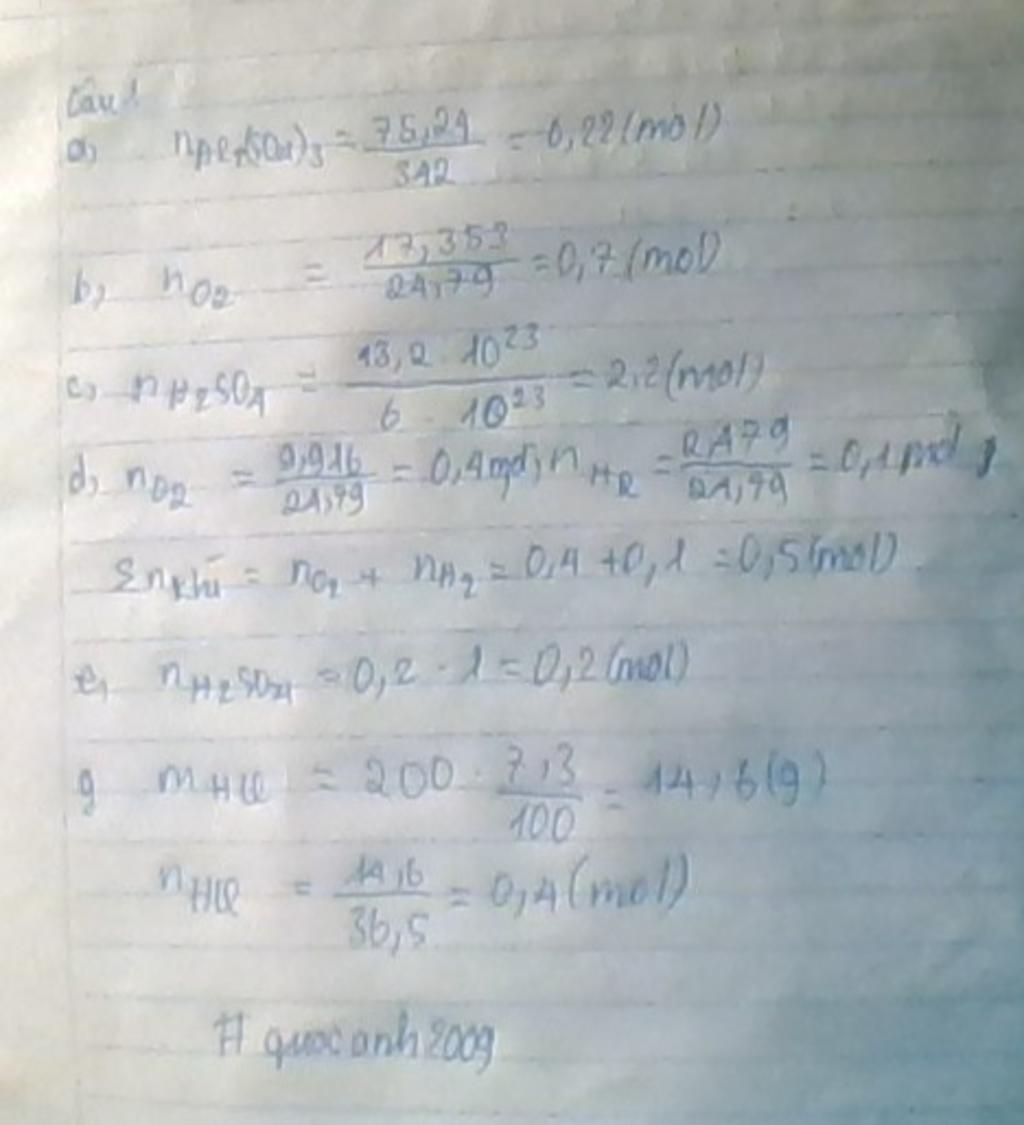 Câu 1
a, nAl2(SO4)3 = 75,24/342 = 0,22 (mol)
b, nO2 = 17,353/24,79 = 0,7 (mol)
c, nH2SO4 = 13,2 . 10^23/6 . 10^23 = 2,2 (mol)
d, nO2 = 9,916/24,79 = 0,4 mol; nH2 = 2,479/24,79 = 0,1 mol;
Σnkhí = nO2 + nH2 = 0,4 + 0,1 = 0,5 (mol)
e, nH2SO4 = 0,2 . 1 = 0,2 (mol)
g mHCl = 200 . 7,3/100 = 14,6 (g)
nHCl = 14,6/36,5 = 0,4 (mol)
# quocanh2009